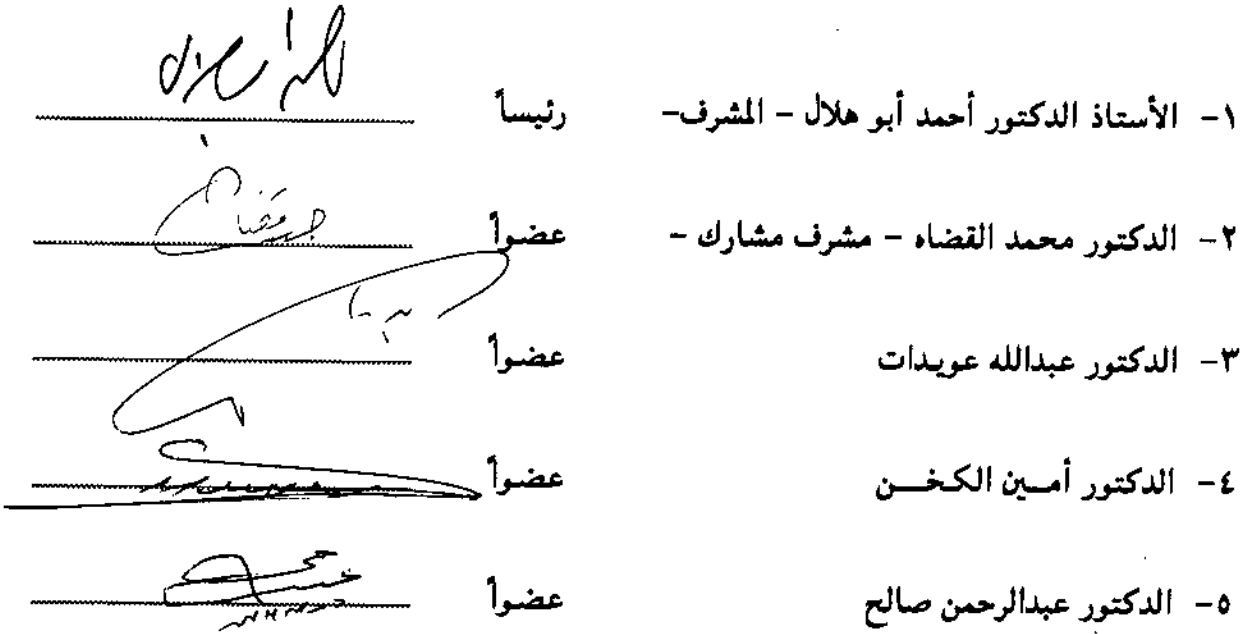 ١- الأستاذ الدكتور أحمد أبو هلال - المشرف- رئيساً
٢- الدكتور محمد القضاه - مشرف مشارك - عضواً
٣- الدكتور عبدالله عويدات عضواً
٤- الدكتور أمــين الكـخــــن عضواً
٥- الدكتور عبدالرحمن صالح عضواً